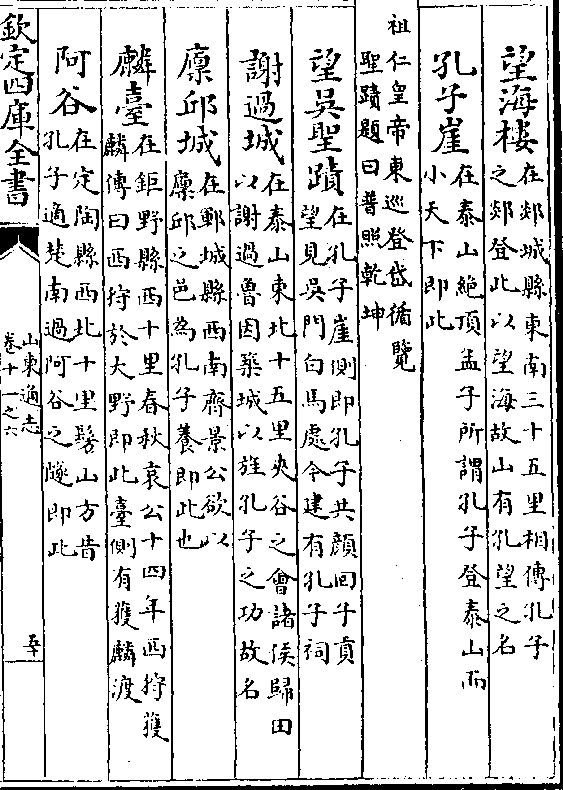 望海樓在郯城縣東南三十五里相傳孔子
之郯登此以望海故山有孔望之名
孔子崖在泰山絶頂孟子所謂孔子登泰山而
小天下即此
祖仁皇帝東巡登岱循覽
聖蹟題曰普照乾坤
望吳聖蹟在孔子崖側即孔子共顔回子貢
望見吳門白馬處今建有孔子祠
謝過城在泰山東北十五里夾谷之會諸侯歸田
以謝過魯因築城以旌孔子之功故名
廩邱城在鄆城縣西南齊景公欲以
廩邱之邑為孔子養即此也
麟臺在鉅野縣西十里春秋哀公十四年西狩獲
麟傳曰西狩於大野即此臺側有獲麟渡
阿谷在定陶縣西北十里髣山方昔
孔子適楚南過阿谷之隧即此
欽定四庫全書
山東通志
卷十一之六